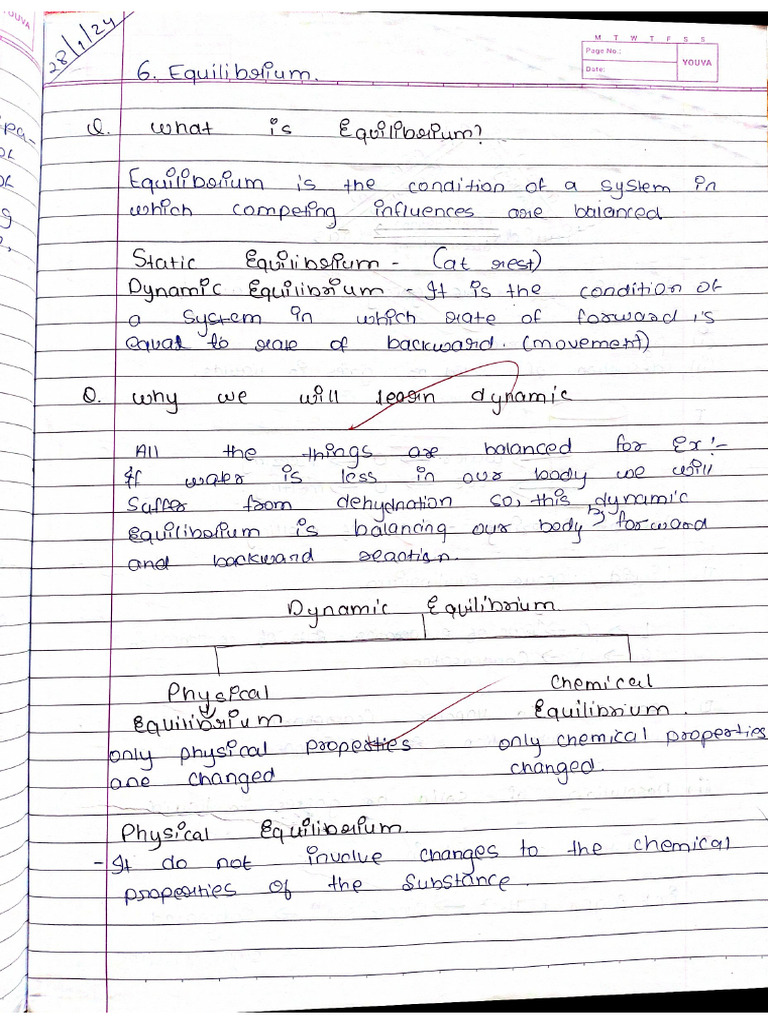 YOUVA
28/1/24
M T W T F S S
Page No :
Date:
YOUVA
6. Equilibrium.
Q. What is Equilibrium?
Equilibrium is the condition of a system in
which competing influences are balanced
Static Equilibrium - (at rest)
Dynamic Equilibrium - It is the condition of
a system in which rate of forward is
equal to rate of backward. (movement)
Q. Why we will learn dynamic
All the things are balanced for Ex:-
If water is less in our body we will
Suffer from dehydration so, this dynamic
Equilibrium is balancing our body forward
and backward reaction.
Dynamic Equilibrium
Physical
Equilibrium
only physical properties
are changed
Chemical
Equilibrium.
only chemical properties
changed.
Physical Equilibrium
- It do not involve changes to the chemical
properties of the substance.